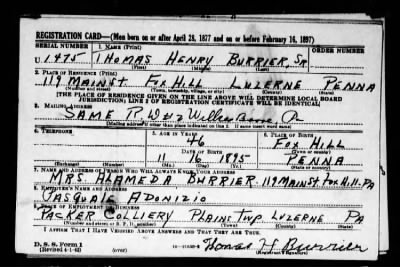 REGISTRATION CARD—(Men born on or after April 28, 1877 and on or before February 16, 1897)
SERIAL NUMBER 1. NAME (Print) ORDER NUMBER
U 1475 THOMAS HENRY BURRIER, SR
(First) (Middle) (Last)
2. PLACE OF RESIDENCE (Print)
119 MAIN ST FOX HILL LUZERNE PENNA
(Number and street) (Town, township, village, or city) (County) (State)
[THE PLACE OF RESIDENCE GIVEN ON THE LINE ABOVE WILL DETERMINE LOCAL BOARD
JURISDICTION; LINE 2 OF REGISTRATION CERTIFICATE WILL BE IDENTICAL]
3. MAILING ADDRESS
SAME Wilkes Barre Pa
[Mailing address if other than place indicated on line 2. If same insert word same]
4. TELEPHONE 5. AGE IN YEARS 6. PLACE OF BIRTH
46 FOX HILL
DATE OF BIRTH (Town or county)
11 16 1895 PENNA
(Exchange) (Number) (Mo.) (Day) (Yr.) (State or country)
7. NAME AND ADDRESS OF PERSON WHO WILL ALWAYS KNOW YOUR ADDRESS
MRS. ALAMEDA BURRIER. 119 MAIN ST. FOX HILL-PA
8. EMPLOYER'S NAME AND ADDRESS
PASQUALE ADONIZIO
9. PLACE OF EMPLOYMENT OR BUSINESS
PACKER COLLIERY PLAINS TWP LUZERNE PA
(Number and street or R. F. D. number) (Town) (County) (State)
I AFFIRM THAT I HAVE VERIFIED ABOVE ANSWERS AND THAT THEY ARE TRUE.
D. S. S. Form 1
(Revised 4-1-42) (over) Thomas H Burrier
(Registrant's signature)